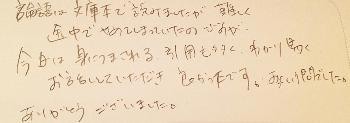 論語は文庫本で読みましたが 難しく
途中でやめてしまっていたのですが、
今日は身につまされる、引用も多く、わかり易く
お話していただき 良かったです。
ありがとう ございました。